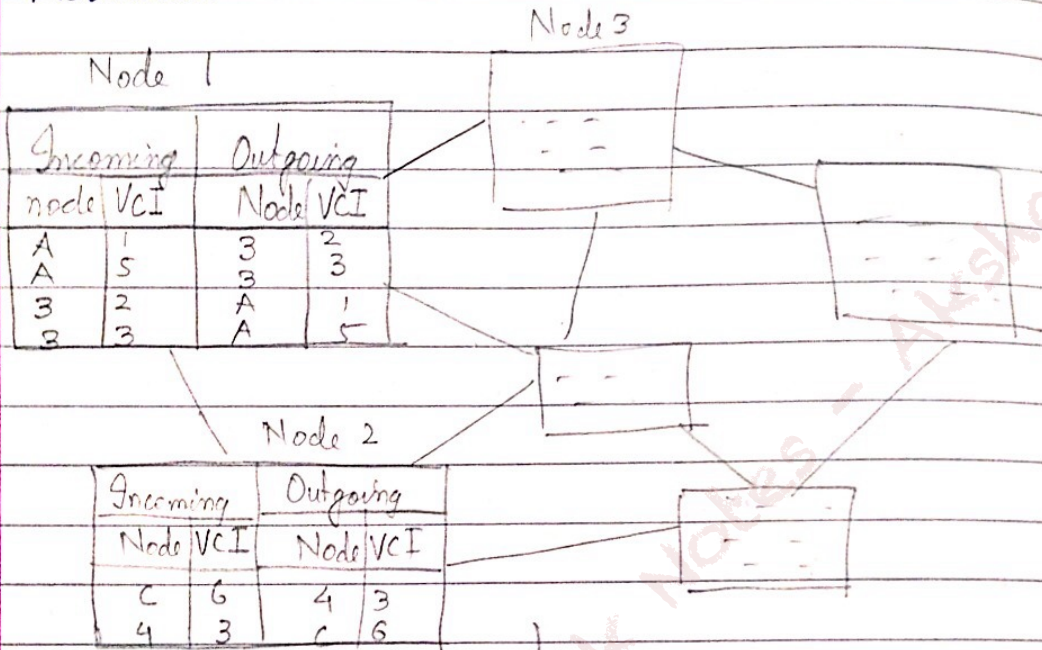 Node 3
Node 1
Incoming Outgoing
node VCI Node VCI
A 1 3 2
A 5 3 3
3 2 A 1
3 3 A 5
Node 2
Incoming Outgoing
Node VCI Node VCI
C 6 4 3
4 3 C 6
Notes - Aksh